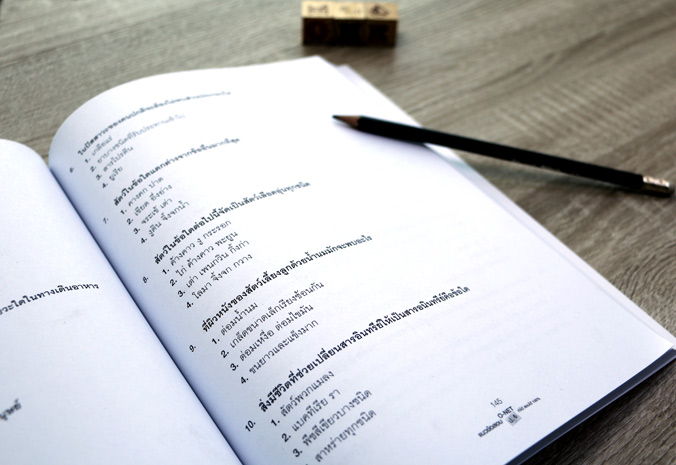 ระใดในทางเดินอาหาร
6.
1. เกลือแร่
3. สารโปรตีน
4. ยูเรีย
7. สัตว์ในข้อใดแตกต่างจากข้ออื่นมากที่สุด
1. คางคก ปาด
2. เขียด อึ่งอ่าง
3. จระเข้ เต่า
4. งูดิน จิ้งจกน้ำ
8. สัตว์ในข้อใดต่อไปนี้จัดเป็นสัตว์เลือดอุ่นทุกชนิด
1. ค้างคาว งู กระรอก
2. ไก่ ค้างคาว พะยูน
3. เต่า เพนกวิน กิ้งก่า
4. โลมา จิ้งจก กวาง
9. ที่ผิวหนังของสัตว์เลี้ยงลูกด้วยน้ำนมมักจะพบอะไร
1. ต่อมน้ำนม
2. เกล็ดขนาดเล็กเรียงซ้อนกัน
3. ต่อมเหงื่อ ต่อมไขมัน
4. ขนยาวและแข็งมาก
10. สิ่งมีชีวิตที่ช่วยเปลี่ยนสารอินทรีย์ให้เป็นสารอนินทรีย์คือข้อใด
1. สัตว์พวกแมลง
2. แบคทีเรีย รา
3. พืชสีเขียวบางชนิด
สาหร่ายทุกชนิด
145
O-NET
แนวข้อสอบ